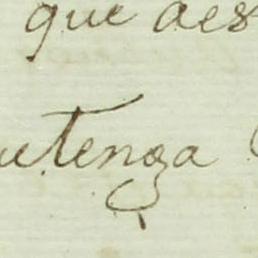 que des
utenza